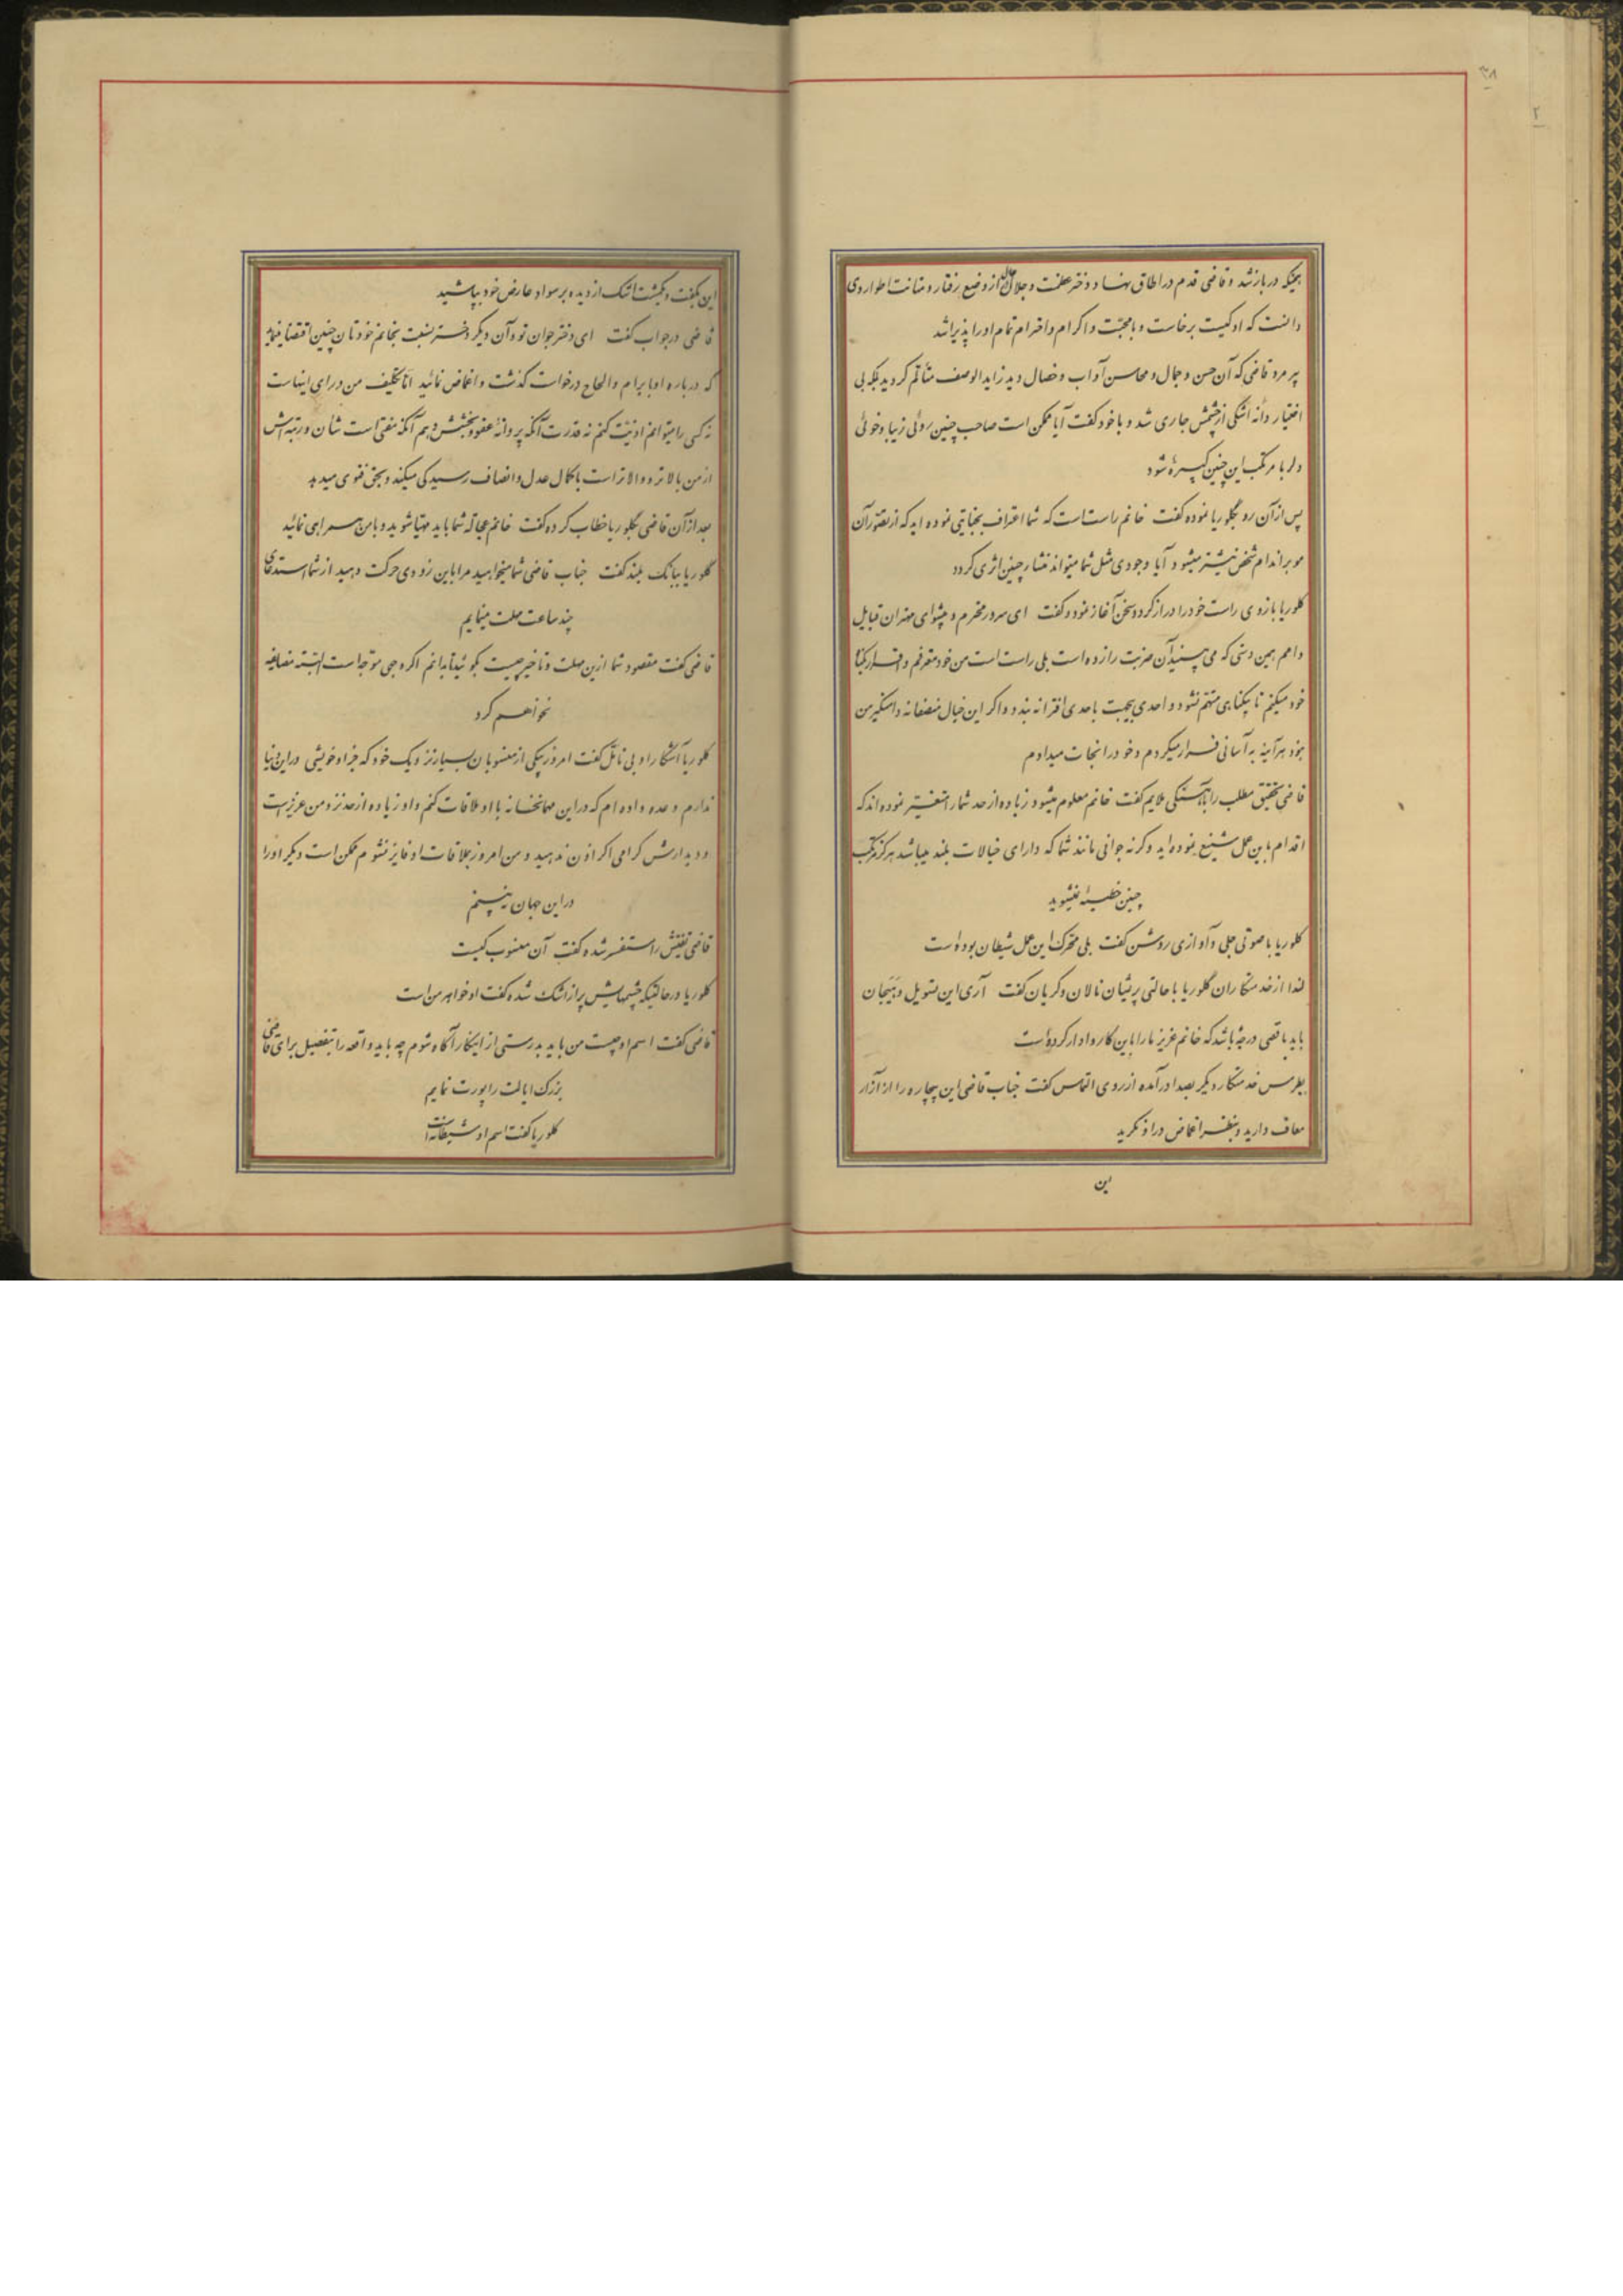 ۳۸
۲
همینکه در باز شد و قاضی قدم در اطاق نهاد دختر عظمت و جلال حال از وضع رفتار و متانت اطوار وی
دانست که او کیست برخاست و با محبّت و اکرام و احترام تمام او را پذیرا شد
پیر مرد قاضی که آن حسن و جمال و محاسن آداب و خصال دید زاید الوصف متألم گردید بلکه بی
اختیار دانهٔ اشکی از چشمش جاری شد و با خود گفت آیا ممکن است صاحب چنین روئی زیبا و خوئی
دلربا مرتکب این چنین کبیرهٔ شود
پس از آن رو بگلوریا نموده گفت خانم راست است که شما اعتراف بجنایتی نموده اید که از تصور آن
مو بر اندام شخص نیشتر میشود آیا وجودی مثل شما میتواند منشاء چنین اثری گردد
گلوریا بازوی راست خود را دراز کرد و سخن آغاز نمود و گفت ای سرور محترم و پیشوای مهتران قبایل
و امم همین دستی که می بینید آن ضربت را زده است بلی راست است من خود معترفم و اقرار بگناه
خود میکنم تا بیگناهی متهم نشود و احدی بیجهت باحدی افترا نه بندد و اگر این خیال منصفانه دامنگیر من
نبود هر آینه به آسانی فرار میکردم و خود را نجات میدادم
قاضی بتحقیق مطلب را بآهستگی ملایم گفت خانم معلوم میشود زیاده از حد شما را متغیّر نموده اند که
اقدام باین عمل شنیع نموده اید و گرنه جوانی مانند شما که دارای خیالات بلند میباشد هرگز مرتکب
چنین خطیئه نمیشوید
گلوریا با صوتی جلی و آوازی روشن گفت بلی محرّک این عمل شیطان بوده است
لندا از خدمتکاران گلوریا با حالتی پریشان نالان و گریان گفت آری این تسویل و هیجان
باید باقصی درجه باشد که خانم عزیز ما را باین کار وادار کرده است
پطرس خدمتکار دیگر بصدا درآمده از روی التماس گفت جناب قاضی این بیچاره را از آزار
معاف دارید و بنظر اغماض در او نگرید
این
این بگفت و بگشت اشک از دیده بر سواد عارض خود بپاشید
قاضی در جواب گفت ای دختر جوان تو و آن دیگر دختر نسبت بخانم خودتان چنین اقتضا مینماید
که درباره او با برام و الحاح درخواست گذشت و اغماض نمائید امّا تکلیف من در رای اینهاست
نه کسی را میتوانم اذیّت کنم نه قدرت آنکه پروانهٔ عفو و بخشش دهم آنکه مفتی است شأن و رتبه اش
از من بالاتر و والاتر است با کمال عدل و انصاف رسیدگی میکند و بحق فتوی میدهد
بعد از آن قاضی بگلوریا خطاب کرده گفت خانم عجالة شما باید مهیّا شوید و با من همراهی نمائید
گلوریا ببانگ بلند گفت جناب قاضی شما میخواهید مرا باین زودی حرکت دهید از شما استدعای
چند ساعت مهلت مینمایم
قاضی گفت مقصود شما از این مهلت و تأخیر چیست بگوئید تا بدانم اگر وجهی موجّه است البته مضایقه
نخواهم کرد
گلوریا آشکارا و بی تأمّل گفت امروز بیکی از منسوبان بسیار نزدیک خود که جز او خویشی در این دنیا
ندارم وعده داده ام که در این مهمانخانه با او ملاقات کنم و او زیاده از حد نزد من عزیز است
و دیدارش گرامی اگر اذن ندهید و من امروز بملاقات او فایز نشوم ممکن است دیگر او را
در این جهان نبینم
قاضی تفتیش را مستفسر شده گفت آن منسوب کیست
گلوریا در حالتیکه چشمهایش پر از اشک شده گفت او خواهر من است
قاضی گفت اسم او چیست من باید بدرستی از اینکار آگاه شوم چه باید واقعه را بتفصیل برای قاضی
بزرک ایالت راپورت نمایم
گلوریا گفت اسم او شیطانه است